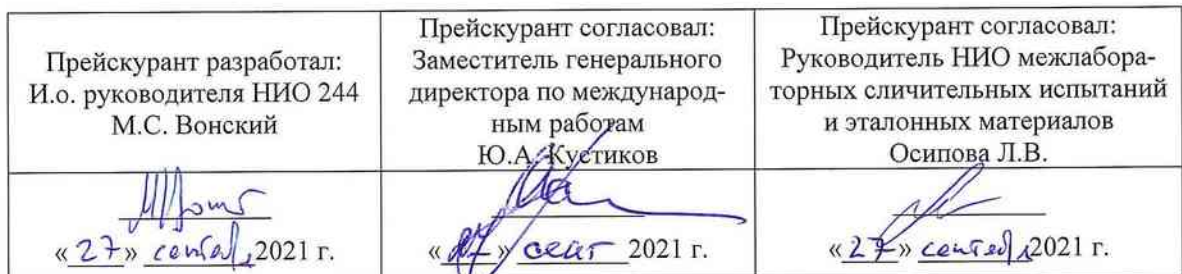 Прейскурант разработал:
И.о. руководителя НИО 244
М.С. Вонский
Прейскурант согласовал:
Заместитель генерального
директора по международ-
ным работам
Ю.А. Кустиков
Прейскурант согласовал:
Руководитель НИО межлабора-
торных сличительных испытаний
и эталонных материалов
Осипова Л.В.
«27» сентября 2021 г.
«27» сент 2021 г.
«27» сентября 2021 г.